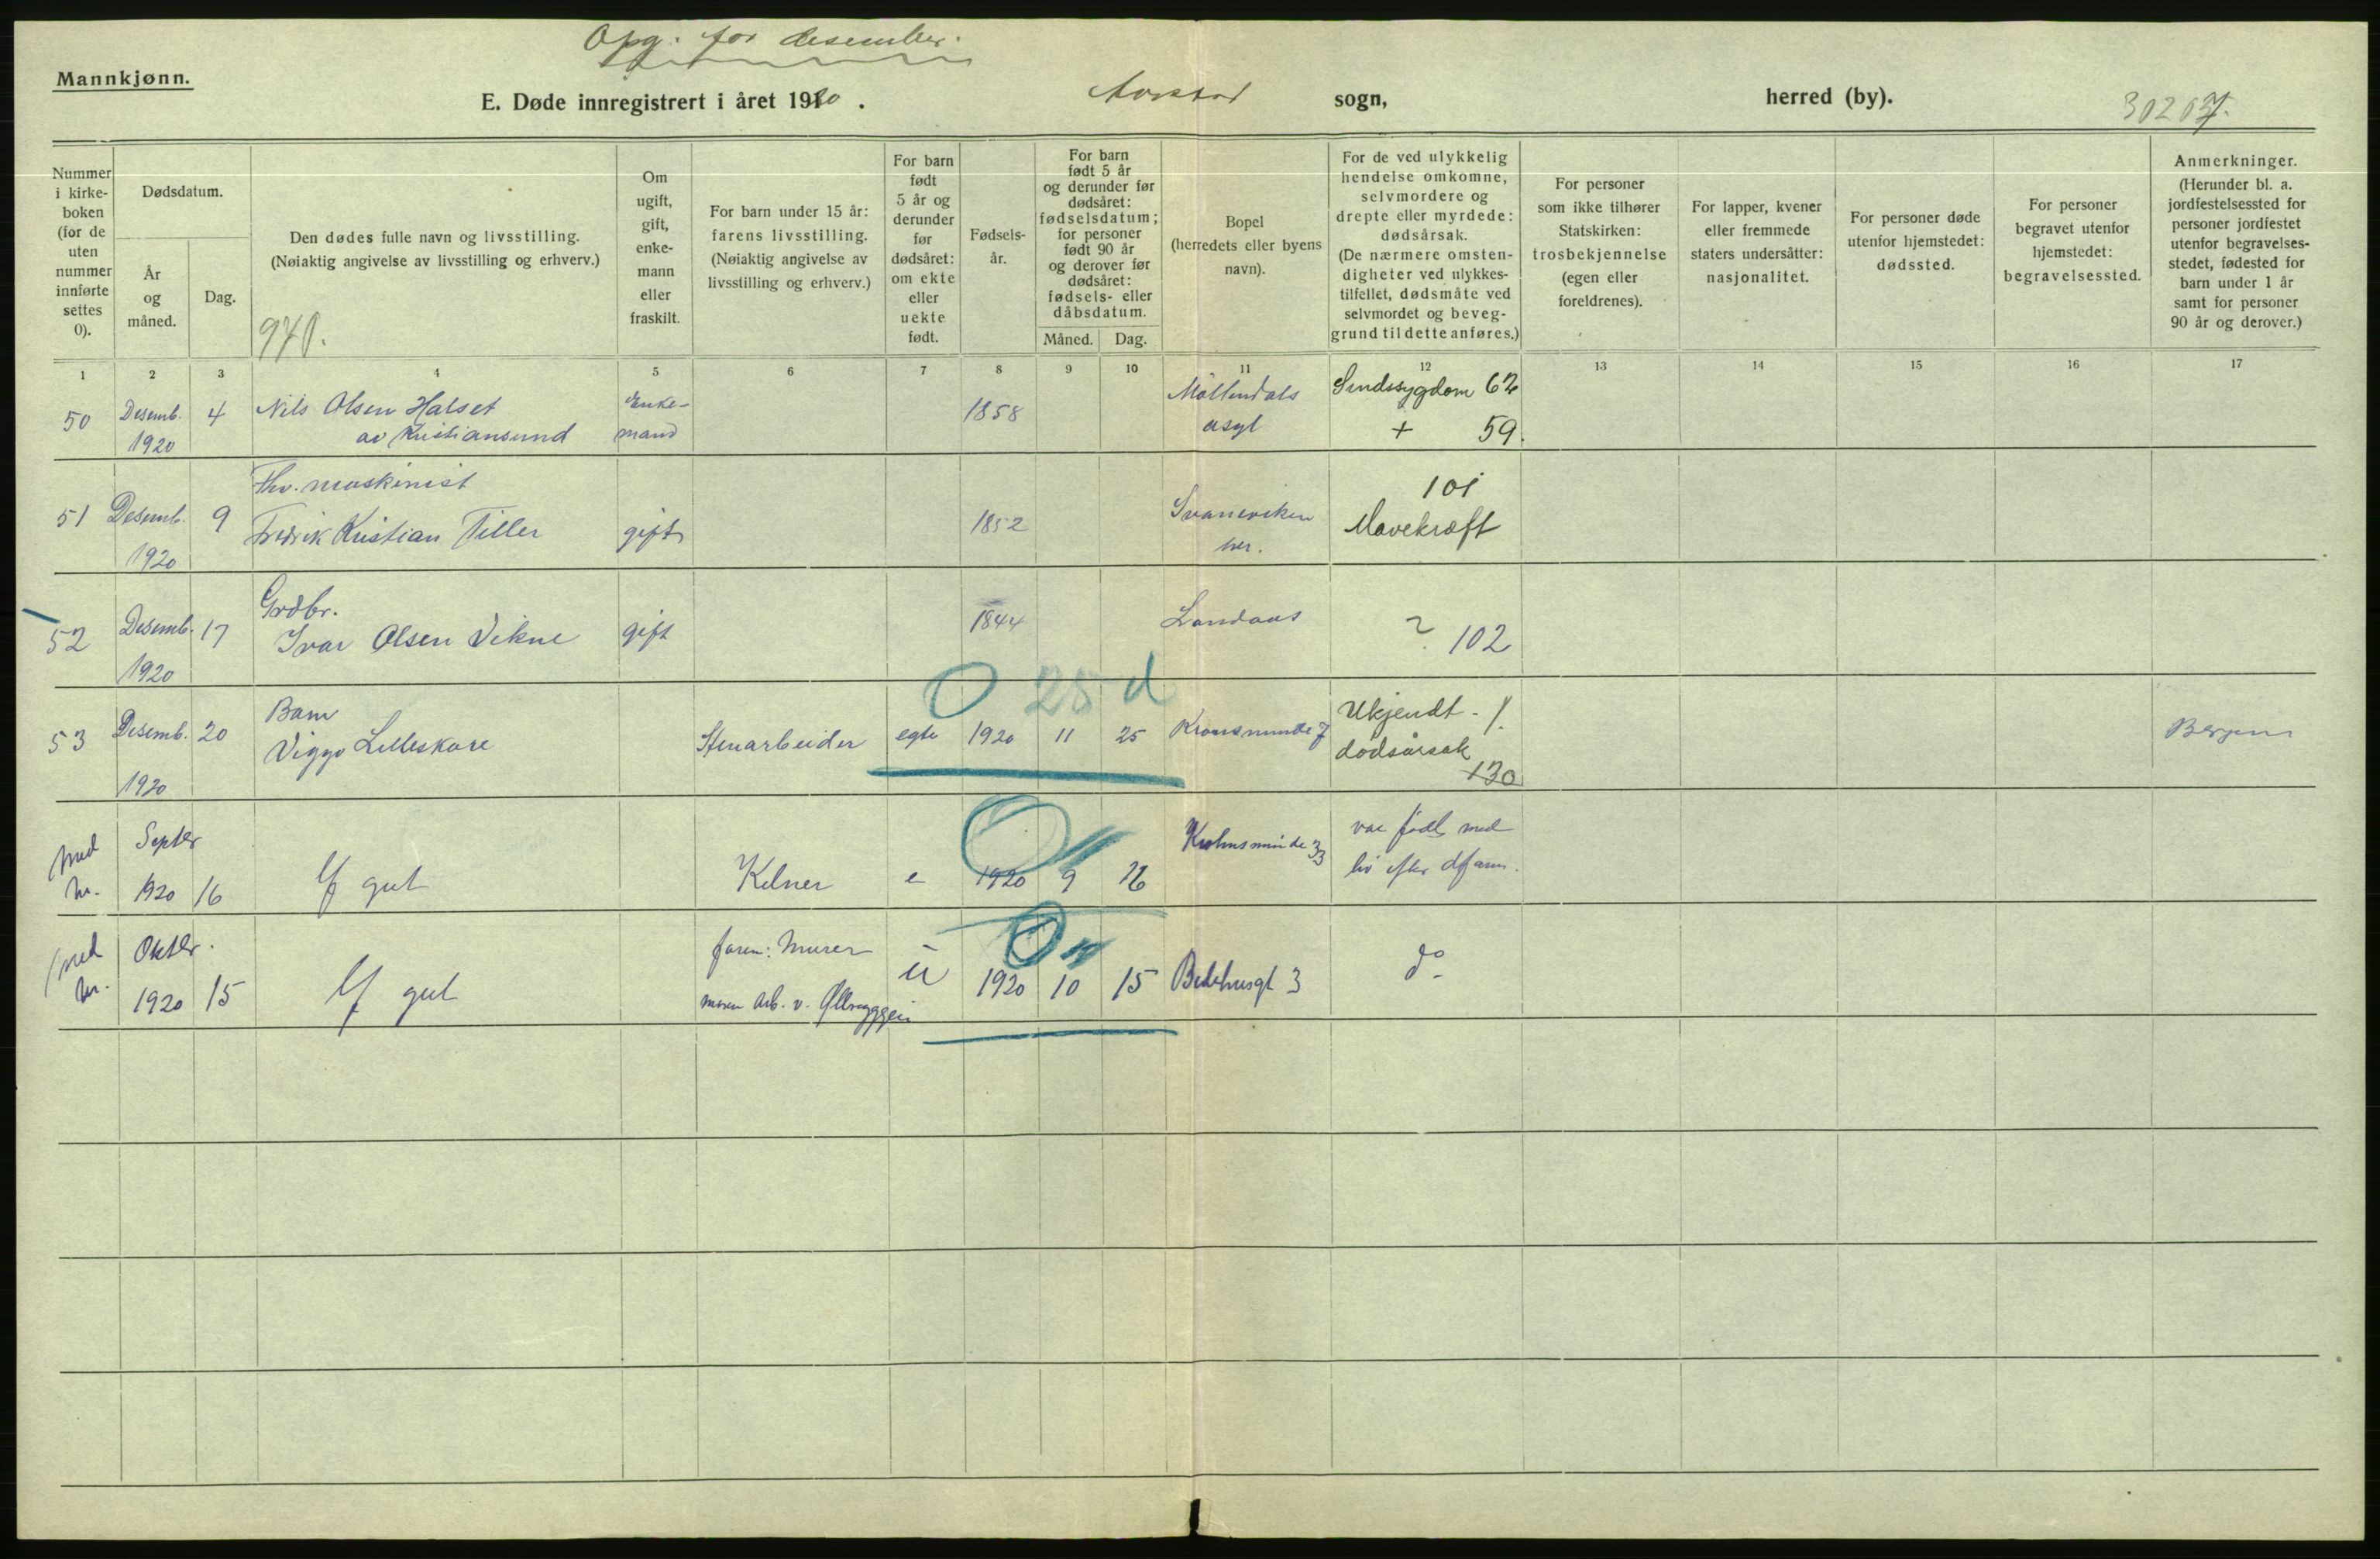 Opg. for desember.
Mannkjønn.
E. Døde innregistrert i året 1920. Aarstad sogn, herred (by).
Nummer i kirke-boken (for de uten nummer innførte settes 0).
Dødsdatum.
År og måned.
Dag.
Den dødes fulle navn og livsstilling.
(Nøiaktig angivelse av livsstilling og erhverv.)
Om ugift, gift, enke-mann eller fraskilt.
For barn under 15 år: farens livsstilling. (Nøiaktig angivelse av livsstilling og erhverv.)
For barn født 5 år og derunder før dødsåret: om ekte eller uekte født.
Fødsels-år.
For barn født 5 år og derunder før dødsåret: fødselsdatum; for personer født 90 år og derover før dødsåret: fødsels- eller dåbsdatum.
Måned. Dag.
Bopel (herredets eller byens navn).
For de ved ulykkelig hendelse omkomne, selvmordere og drepte eller myrdede: dødsårsak. (De nærmere omsten-digheter ved ulykkes-tilfellet, dødsmåte ved selvmordet og beveg-grund til dette anføres.)
For personer som ikke tilhører Statskirken: trosbekjennelse (egen eller foreldrenes).
For lapper, kvener eller fremmede staters undersåtter: nasjonalitet.
For personer døde utenfor hjemstedet: dødssted.
For personer begravet utenfor hjemstedet: begravelsessted.
Anmerkninger. (Herunder bl. a. jordfestelsessted for personer jordfestet utenfor begravelses-stedet, fødested for barn under 1 år samt for personer 90 år og derover.)
1 2 3 4 5 6 7 8 9 10 11 12 13 14 15 16 17
50 Desemb. 1920 4 Nils Olsen Halset av Kristiansund Enke-mand 1858 Möllendals asyl Sindssygdom 62 + 59.
51 Desemb. 1920 9 Fhv. maskinist Fredrik Kristian Tiller gift 1852 Svaneviken her. 101 Mavekræft
52 Desemb. 1920 17 Grdbr. Ivar Olsen Vikne gift 1844 Landaas ? 102
0 25 d
53 Desemb. 1920 20 Barn Viggo Lilleskare Stenarbeider egte 1920 11 25 Kronsminde 7 Ukjendt dødsårsak 130 Bergen
Septbr 1920 16 gut Kelner e 1920 9 16 Krohnsminde 33 var født med liv efter
Oktbr. 1920 15 gut faren: Murer moren Arb. v. u 1920 10 15 Bedehusgt 3 do